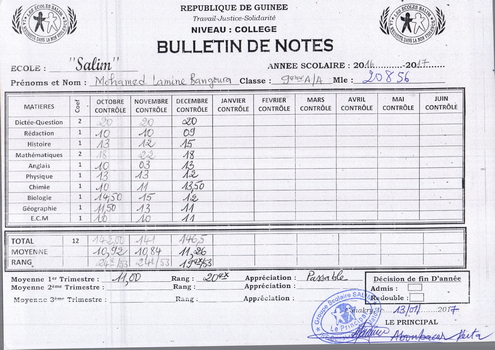 REPUBLIQUE DE GUINEE
Travail-Justice-Solidarité
NIVEAU : COLLEGE
BULLETIN DE NOTES
ECOLE : "Salim" ANNEE SCOLAIRE : 2016 2017
Prénoms et Nom : Mohamed Lamine Bangoura Classe : 9ème A/A Mle : 20856
MATIERES Coef OCTOBRE CONTRÔLE NOVEMBRE CONTRÔLE DECEMBRE CONTRÔLE JANVIER CONTRÔLE FEVRIER CONTRÔLE MARS CONTRÔLE AVRIL CONTRÔLE MAI CONTRÔLE JUIN CONTRÔLE
Dictée-Question 2 20 20 20
Rédaction 1 10 10 09
Histoire 1 13 12 15
Mathématiques 2 18 22 18
Anglais 1 10 03 13
Physique 1 13 13 12
Chimie 1 10 11 13,50
Biologie 1 14,50 15 12
Géographie 1 11,50 13 11
E.C.M 1 10 10 11
TOTAL 12 141 146,5
MOYENNE 10,92 10,84 11,26
RANG
Moyenne 1er Trimestre : 11,00 Rang : 20ex Appréciation : Passable
Moyenne 2ème Trimestre : Rang : Appréciation :
Moyenne 3ème Trimestre : Rang : Appréciation :
Décision de fin D'année
Admis :
Redouble :
13/01/2017
LE PRINCIPAL
Groupe Scolaire SALIM
Le Principal
Aboubacar Keita